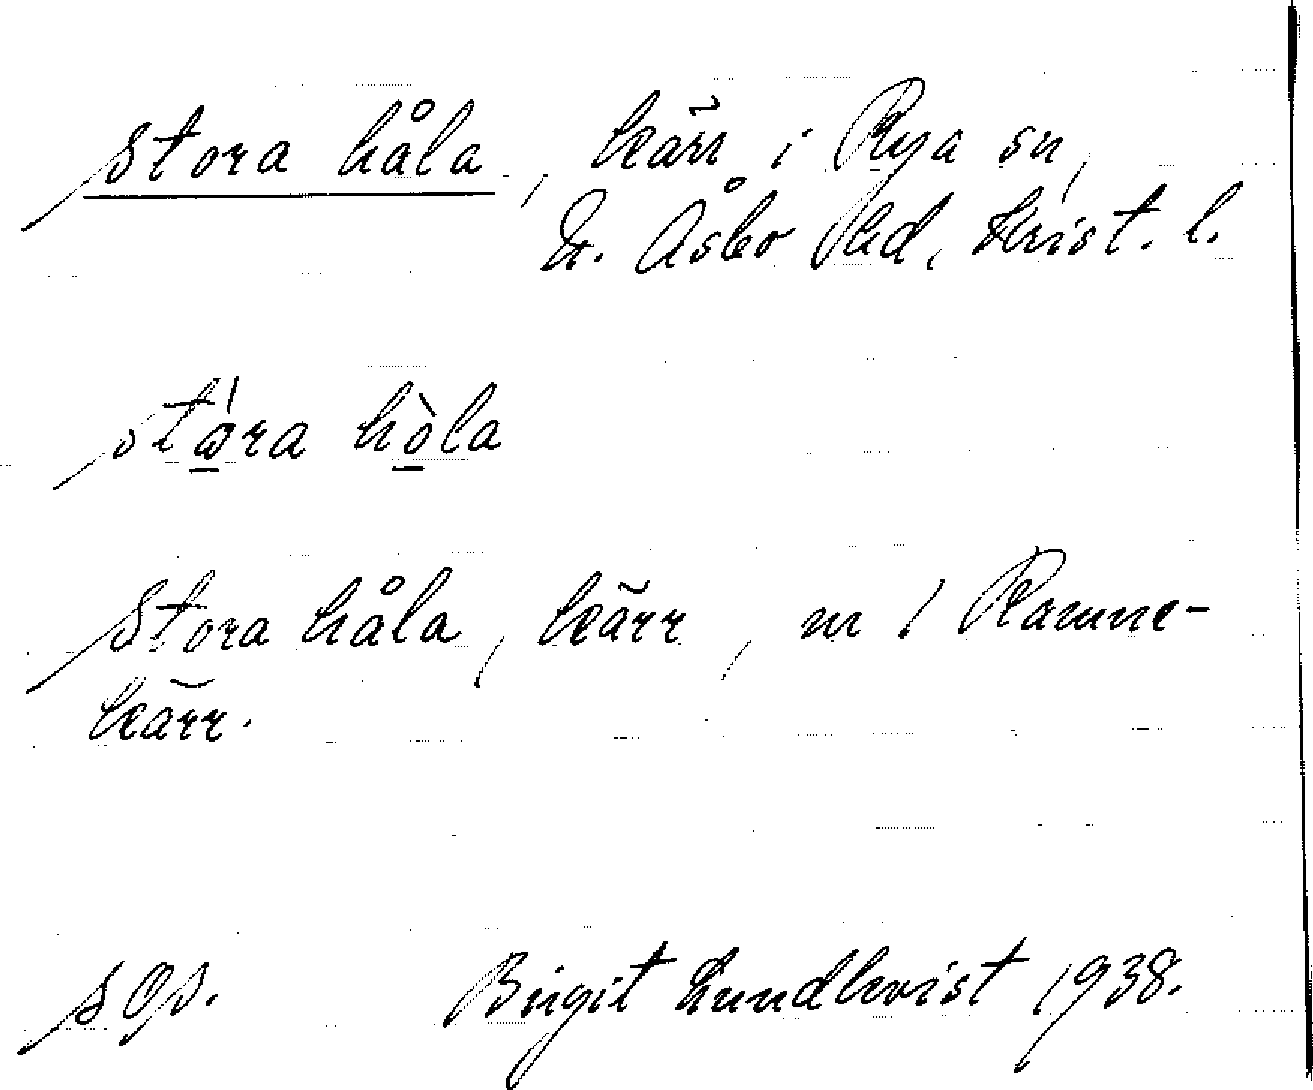 Stora håla, kärr i Rya sn,
N. Åsbo hd, Krist. l.
stʹɷra hòla
Stora håla, kärr, nr 1 Ramne-
kärr.
sGs. Birgit Lundkvist 1938.